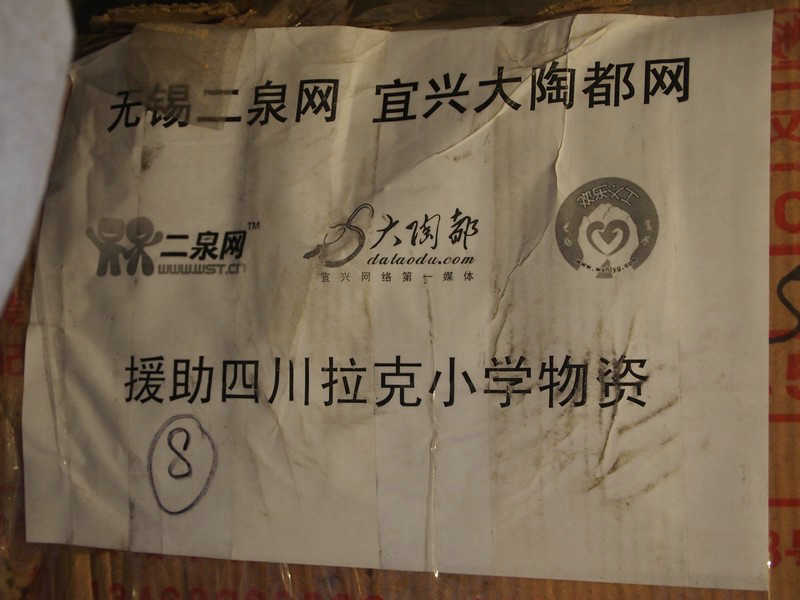 无锡二泉网 宜兴大陶都网
二泉网™
www.wst.cn
大陶都
dataodu.com
宜兴网络第一媒体
欢乐义工
援助四川拉克小学物资
8